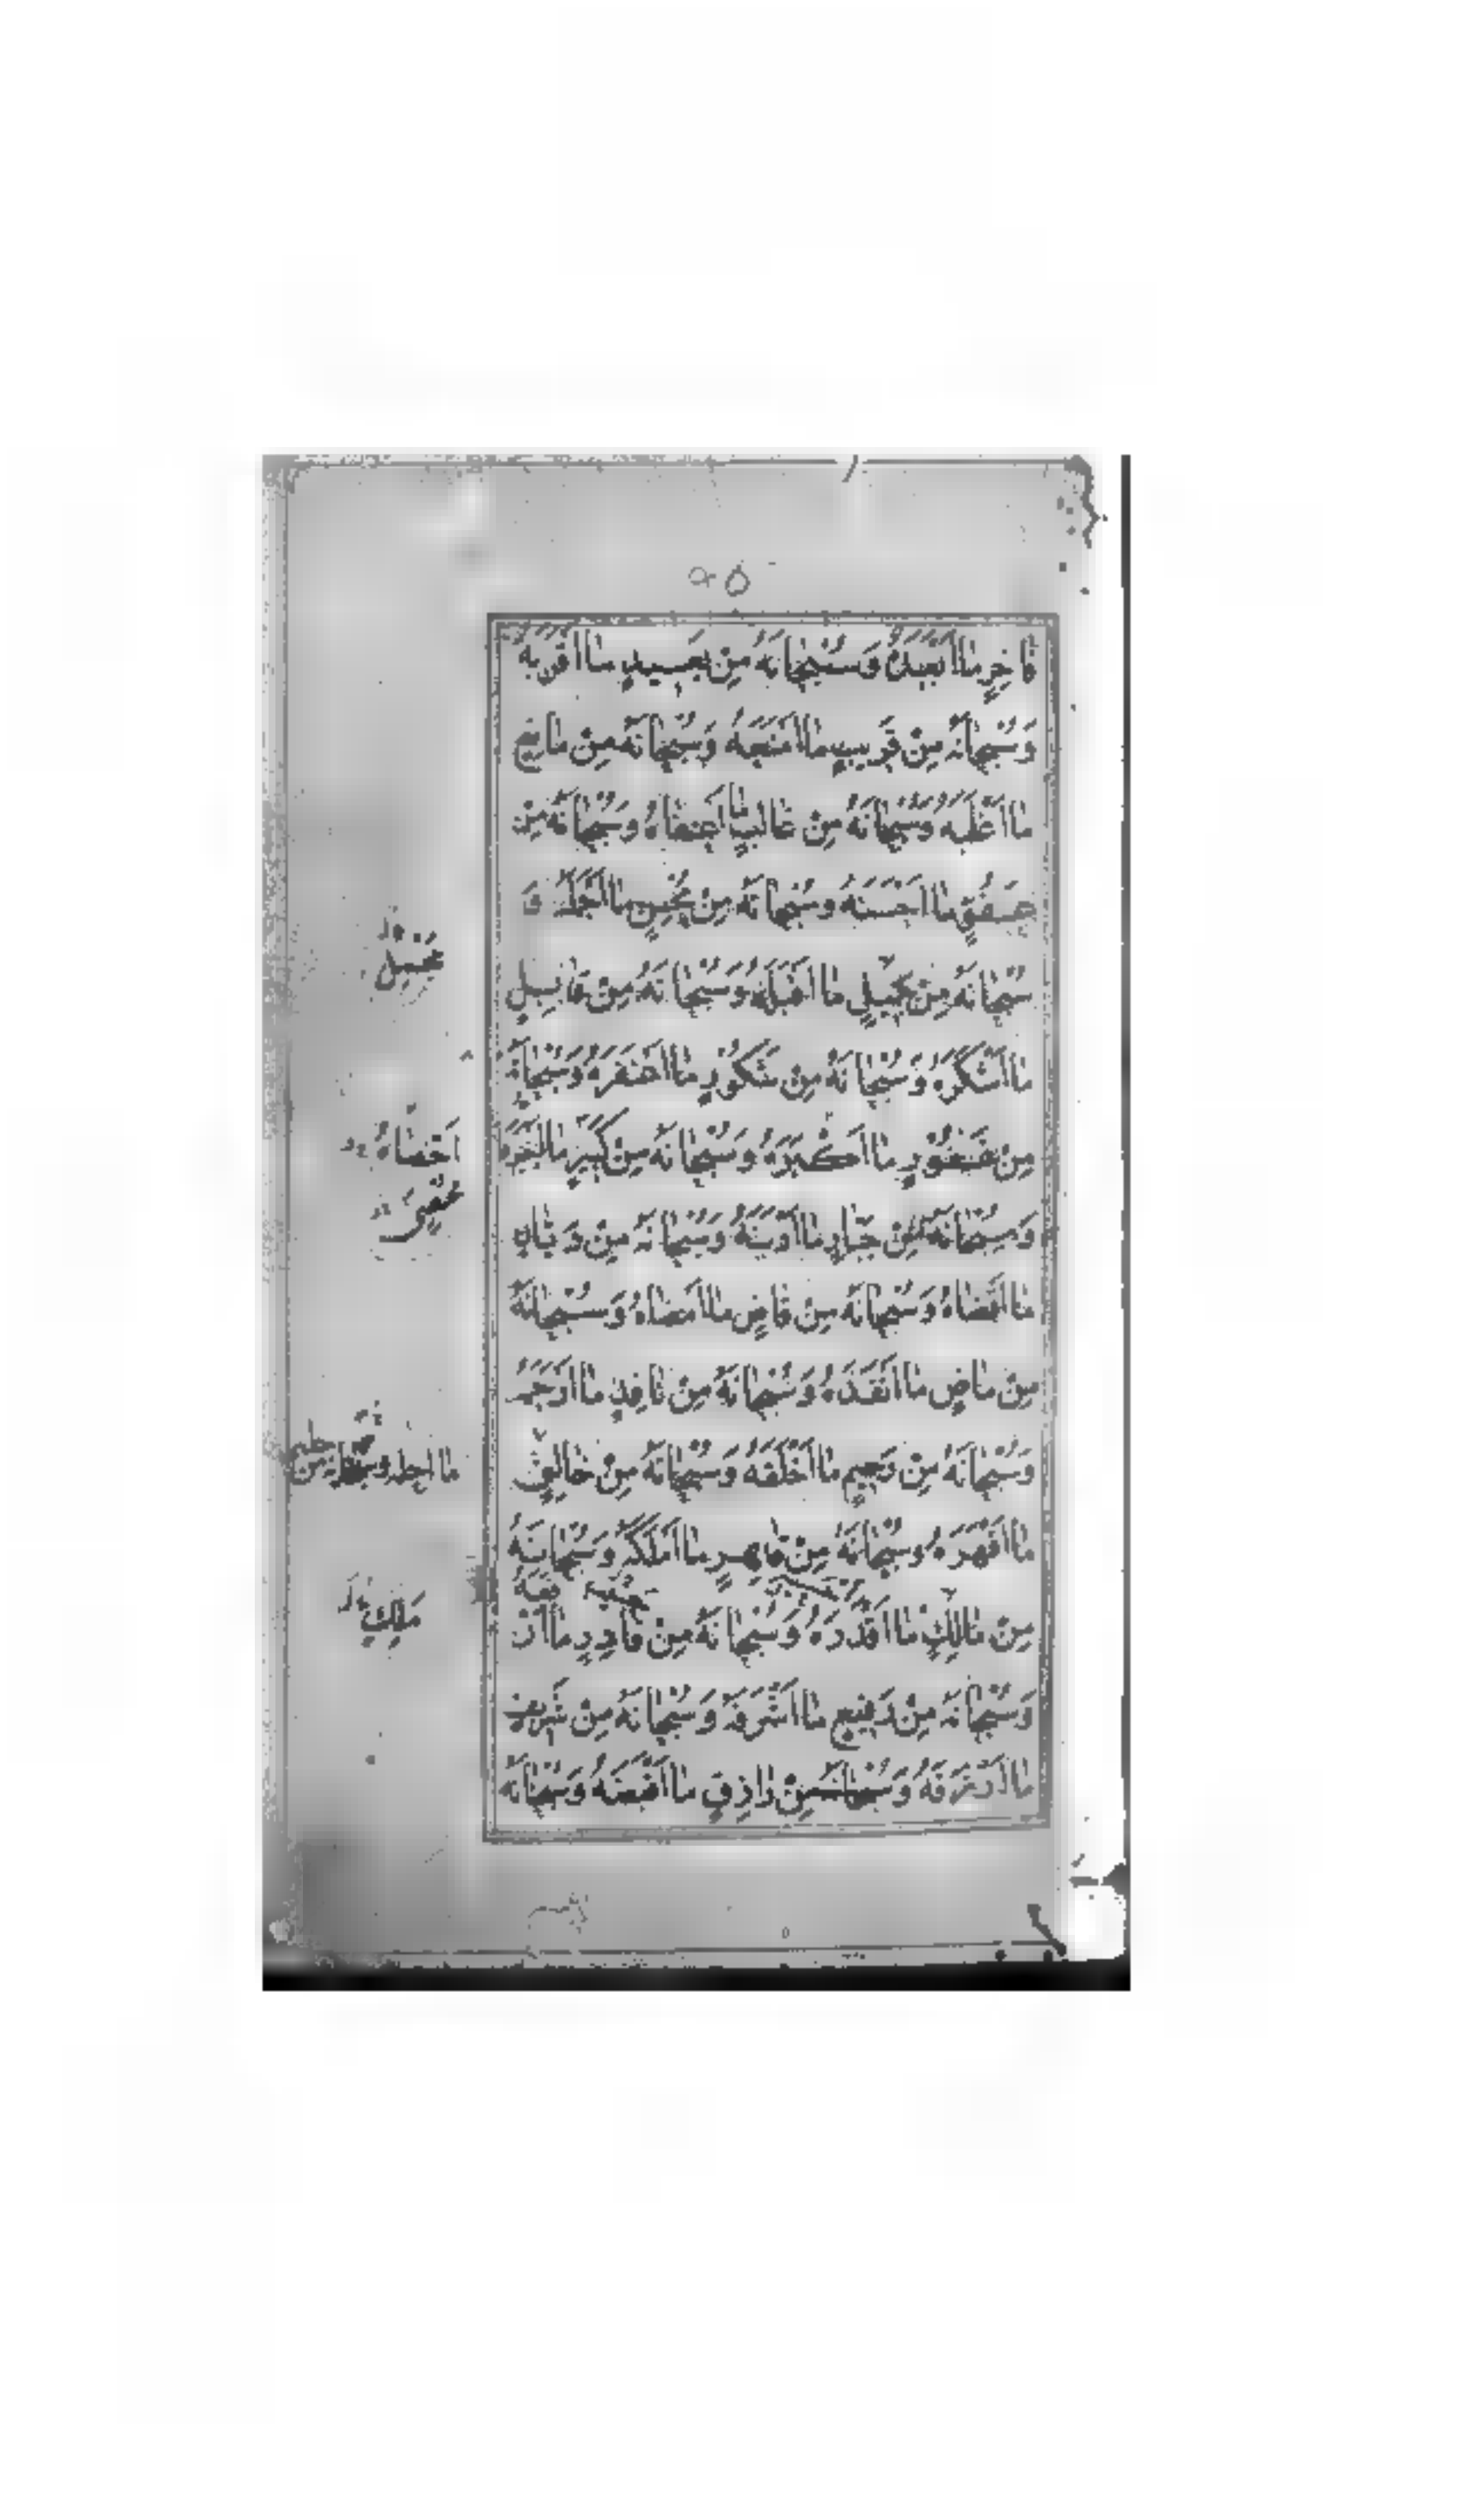 فَاخِرٍ مَا اَبْعَدَهُ وَسُبْحَانَهُ مِنْ بَعِيدٍ مَا اَقْرَبَهُ
وَسُبْحَانَهُ مِنْ قَرِيبٍ مَا اَمْنَعَهُ وَسُبْحَانَهُ مِنْ مَانِعٍ
مَا اَغْلَبَهُ وَسُبْحَانَهُ مِنْ غَالِبٍ مَا اَعْفَاهُ وَسُبْحَانَهُ مِنْ
عَفُوٍّ مَا اَحْسَنَهُ وَسُبْحَانَهُ مِنْ مُحْسِنٍ مَا اَجْمَلَهُ وَ
سُبْحَانَهُ مِنْ جَمِيلٍ مَا اَقْبَلَهُ وَسُبْحَانَهُ مِنْ قَابِلٍ
مَا اَشْكَرَهُ وَسُبْحَانَهُ مِنْ شَكُورٍ مَا اَغْفَرَهُ وَسُبْحَانَهُ
مِنْ غَفُورٍ مَا اَكْبَرَهُ وَسُبْحَانَهُ مِنْ كَبِيرٍ مَا اَجْبَرَهُ
وَسُبْحَانَهُ مِنْ جَبَّارٍ مَا اَدْيَنَهُ وَسُبْحَانَهُ مِنْ دَيَّانٍ
مَا اَقْضَاهُ وَسُبْحَانَهُ مِنْ قَاضٍ مَا اَمْضَاهُ وَسُبْحَانَهُ
مِنْ مَاضٍ مَا اَنْفَذَهُ وَسُبْحَانَهُ مِنْ نَافِذٍ مَا اَرْحَمَهُ
وَسُبْحَانَهُ مِنْ رَحِيمٍ مَا اَخْلَقَهُ وَسُبْحَانَهُ مِنْ خَالِقٍ
مَا اَقْهَرَهُ وَسُبْحَانَهُ مِنْ قَاهِرٍ مَا اَمْلَكَهُ وَسُبْحَانَهُ
مِنْ مَالِكٍ مَا اَقْدَرَهُ وَسُبْحَانَهُ مِنْ قَادِرٍ مَا اَرْ
فَعَهُ
وَسُبْحَانَهُ مِنْ رَفِيعٍ مَا اَشْرَفَهُ وَسُبْحَانَهُ مِنْ شَرِيفٍ
مَا اَرْزَقَهُ وَسُبْحَانَهُ مِنْ رَازِقٍ مَا اَقْبَضَهُ وَسُبْحَانَهُ
اَحْصَاهُ
مُحْصِى
ما احلمه وسبحانه من حليم
مَلِيكٍ